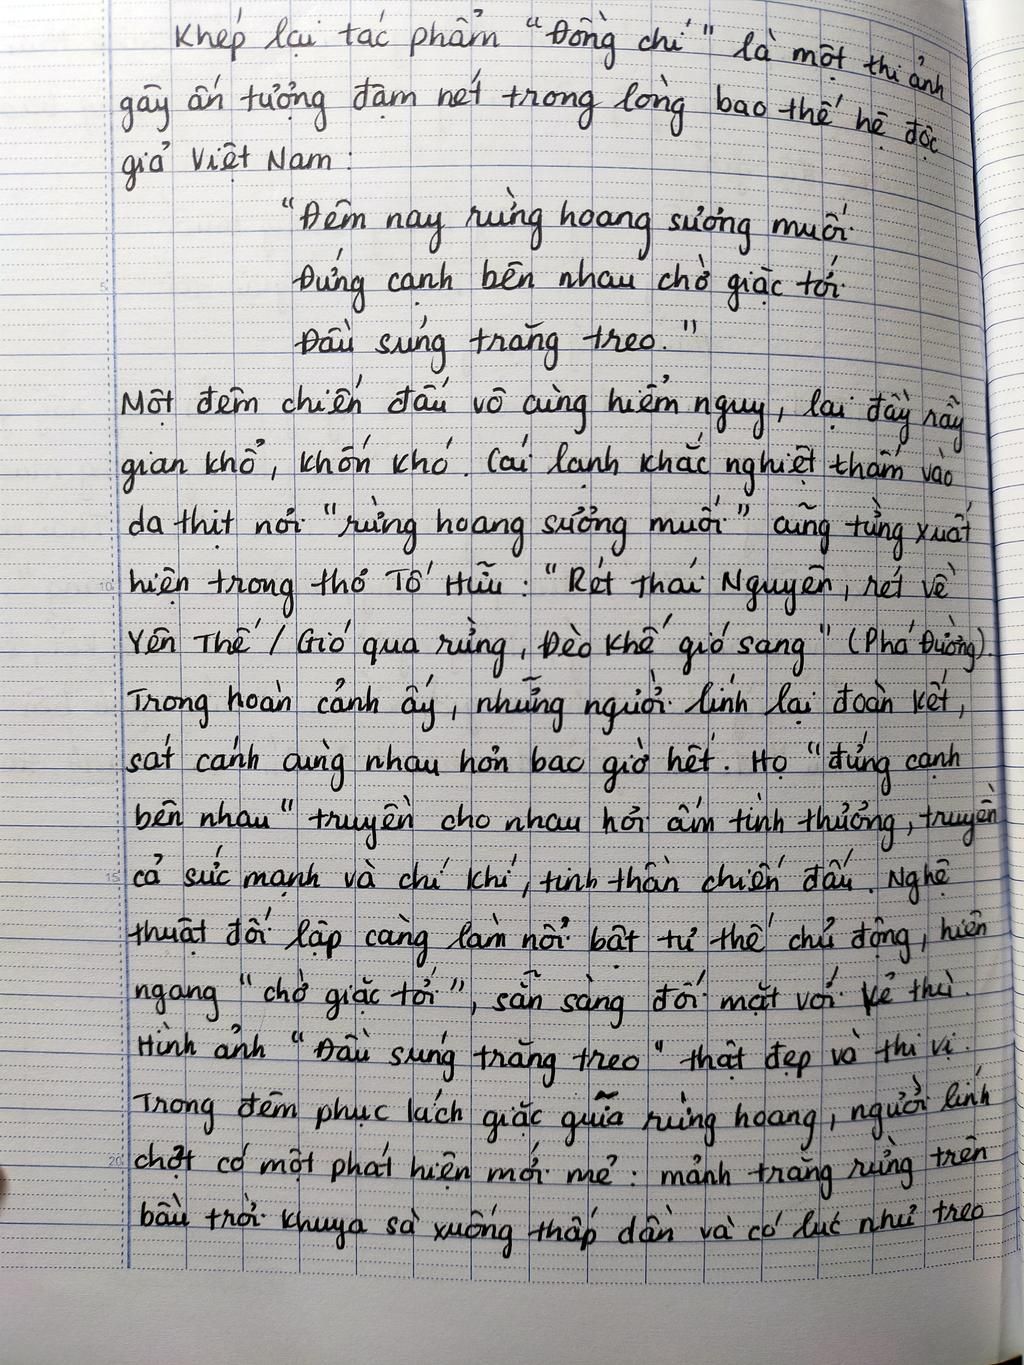 Khép lại tác phẩm "Đồng chí" là một thi ảnh
gây ấn tượng đậm nét trong lòng bao thế hệ độc
giả Việt Nam :
"Đêm nay rừng hoang sương muối
Đứng cạnh bên nhau chờ giặc tới
Đầu súng trăng treo."
Một đêm chiến đấu vô cùng hiểm nguy, lại đầy rẫy
gian khổ, khốn khó. Cái lạnh khắc nghiệt thấm vào
da thịt nơi "rừng hoang sương muối" cũng từng xuất
hiện trong thơ Tố Hữu : "Rét Thái Nguyên, rét về
Yên Thế / Gió qua rừng, Đèo Khế gió sang" (Phá Đường).
Trong hoàn cảnh ấy, những người lính lại đoàn kết,
sát cánh cùng nhau hơn bao giờ hết. Họ "đứng cạnh
bên nhau" truyền cho nhau hơi ấm tình thương, truyền
cả sức mạnh và chí khí, tinh thần chiến đấu. Nghệ
thuật đối lập càng làm nổi bật tư thế chủ động, hiên
ngang "chờ giặc tới", sẵn sàng đối mặt với kẻ thù.
Hình ảnh "Đầu súng trăng treo" thật đẹp và thi vị.
Trong đêm phục kích giặc giữa rừng hoang, người lính
chợt có một phát hiện mới mẻ : mảnh trăng rừng trên
bầu trời khuya sà xuống thấp dần và có lúc như treo